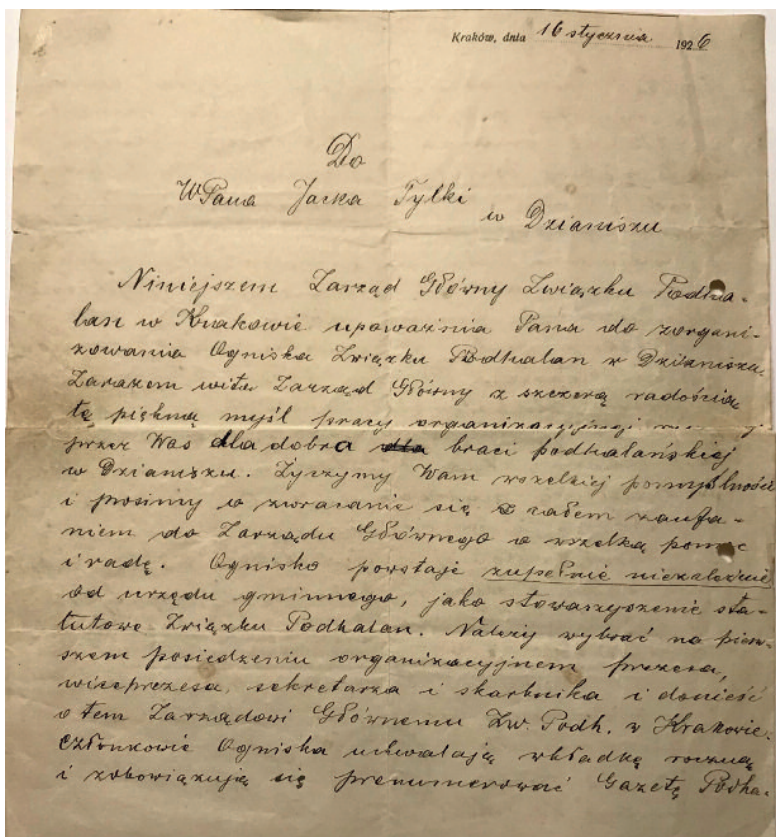 Kraków, dnia 16 stycznia 1926
Do
WPana Jacka Tylki
w Dzianiszu
Niniejszem Zarząd Główny Związku Podha-
lan w Krakowie upoważnia Pana do zorgani-
zowania Ogniska Związku Podhalan w Dzianiszu.
Zarazem wita Zarząd Główny z szczerą radością
tę piękną myśl pracy organizacyjnej
przez Was dla dobra braci podhalańskiej
w Dzianiszu. Życzymy Wam wszelkiej pomyślności
i prosimy o zwracanie się z całem zaufa-
niem do Zarządu Głównego o wszelką pomoc
i radę. Ognisko powstaje zupełnie niezależnie
od urzędu gminnego, jako stowarzyszenie sta-
tutowe Związku Podhalan. Należy wybrać na pierw-
szem posiedzeniu organizacyjnem prezesa,
wiceprezesa, sekretarza i skarbnika i donieść
o tem Zarządowi Głównemu Zw. Podh. w Krakowie.
Członkowie Ogniska uchwalają wkładkę roczną
i zobowiązują się prenumerować Gazetę Podha-